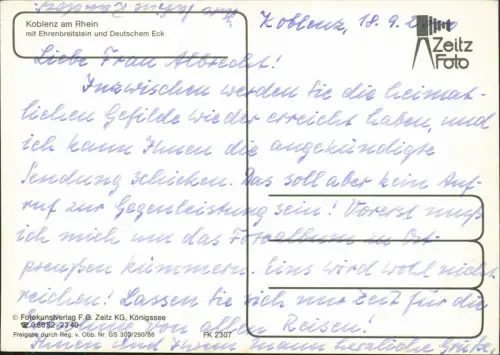 Koblenz, 18.9.
Koblenz am Rhein
mit Ehrenbreitstein und Deutschem Eck
Zeitz
Foto
Liebe Frau Albrecht!
Inzwischen werden Sie die heimat-
lichen Gefilde wieder erreicht haben, und
ich kann Ihnen die angekündigte
Sendung schicken. Das soll aber kein Auf-
ruf zur Gegenleistung sein! Vorerst muß
ich mich um das Fotoalbum in Ost-
preußen kümmern. Eins wird wohl nicht
reichen! Lassen Sie sich nur Zeit für die
von allen Reisen!
Ihnen und Ihrem Mann herzliche Grüße
© Fotokunstverlag F.G. Zeitz KG, Königssee
☎ 08652-2340
Freigabe durch Reg. v. Obb. Nr. GS 300/290/86
FK 2307